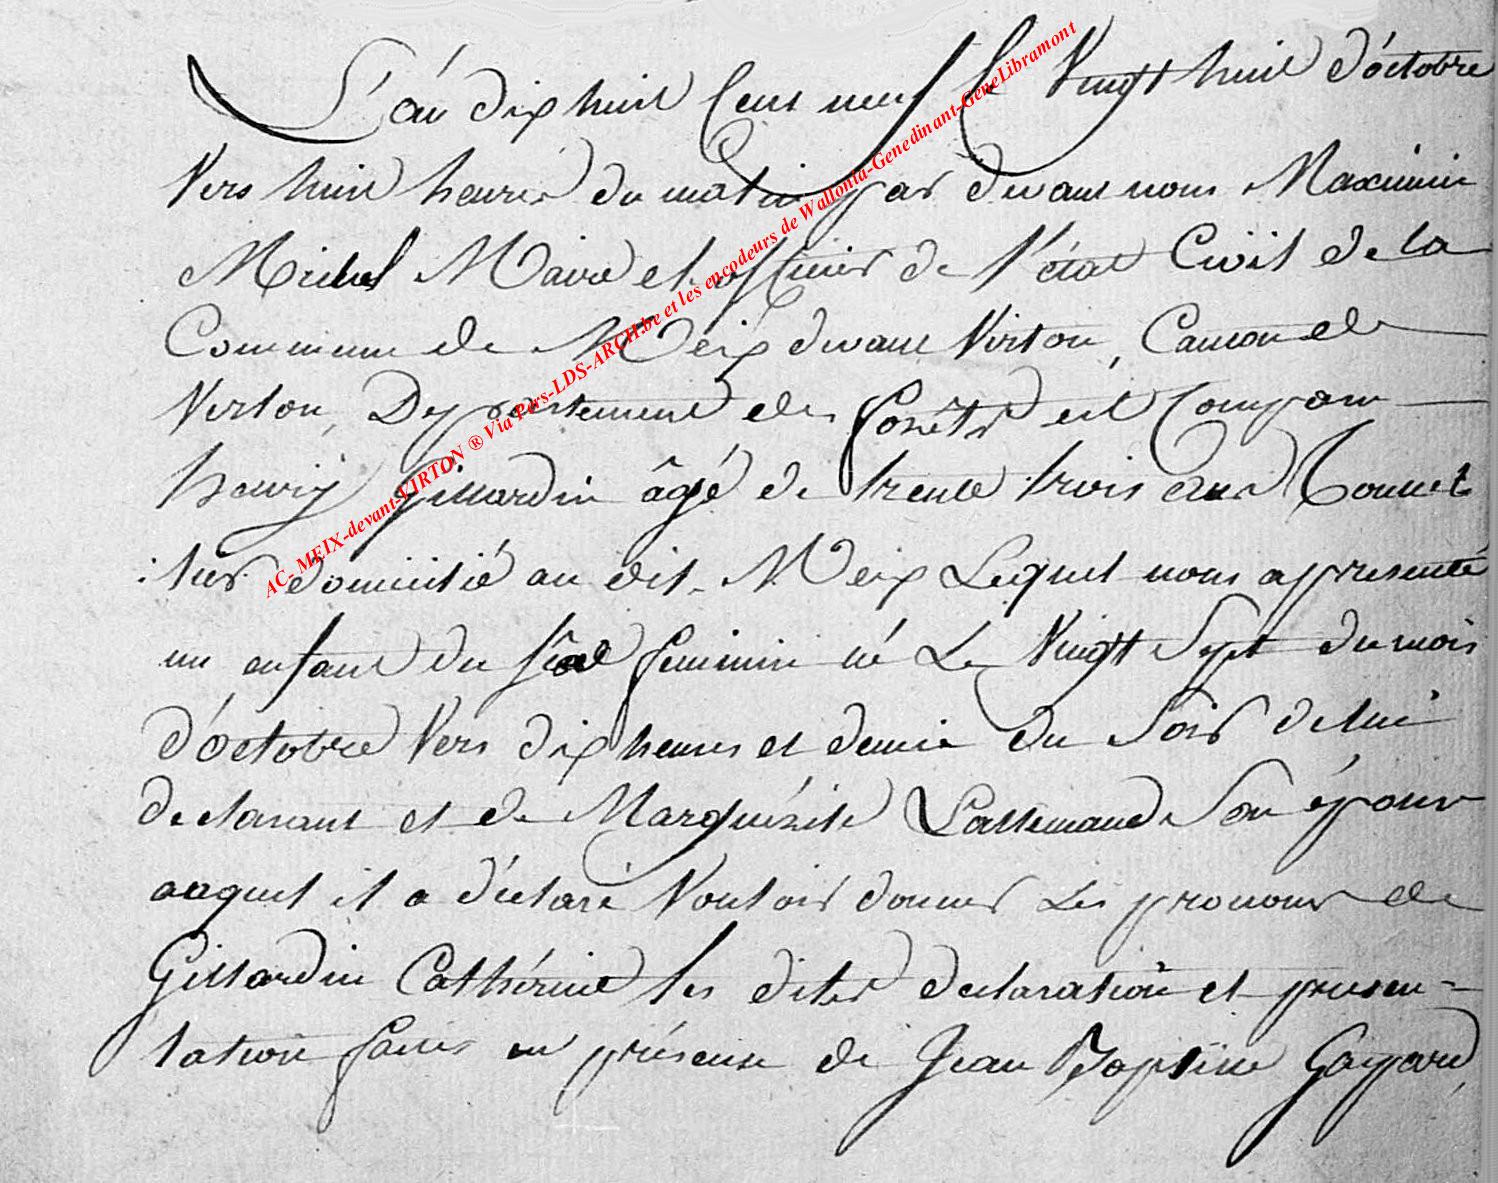 L'an dix huit Cent neuf le Vingt huit d'octobre
Vers huit heures du matin par devant nous Maximin
Michel Maire et officier de l'état Civil de la
Commune de Meix devant Virton, Canton de
Virton, Departement des forêts est Comparu
henry Gillardin âgé de trente trois ans Tonnel
:lier domicilié au dit Meix Lequel nous a presenté
un enfant du féminin né Le Vingt Sept du mois
d'octobre Vers dix heures et demie du Soir de lui
declarant et de Marguérite Lallemand Son épouse
auquel il a déclaré Vouloir donner Les prenoms de
Gillardin Cathérine les dites declaration et presen-
tation faites en présence de Jean Baptiste Gaspard,
AC- MEIX-devant-VIRTON ® Via Pers-LDS-ARCH.be et les encodeurs de Wallonia-Genedinant-GeneLibramont